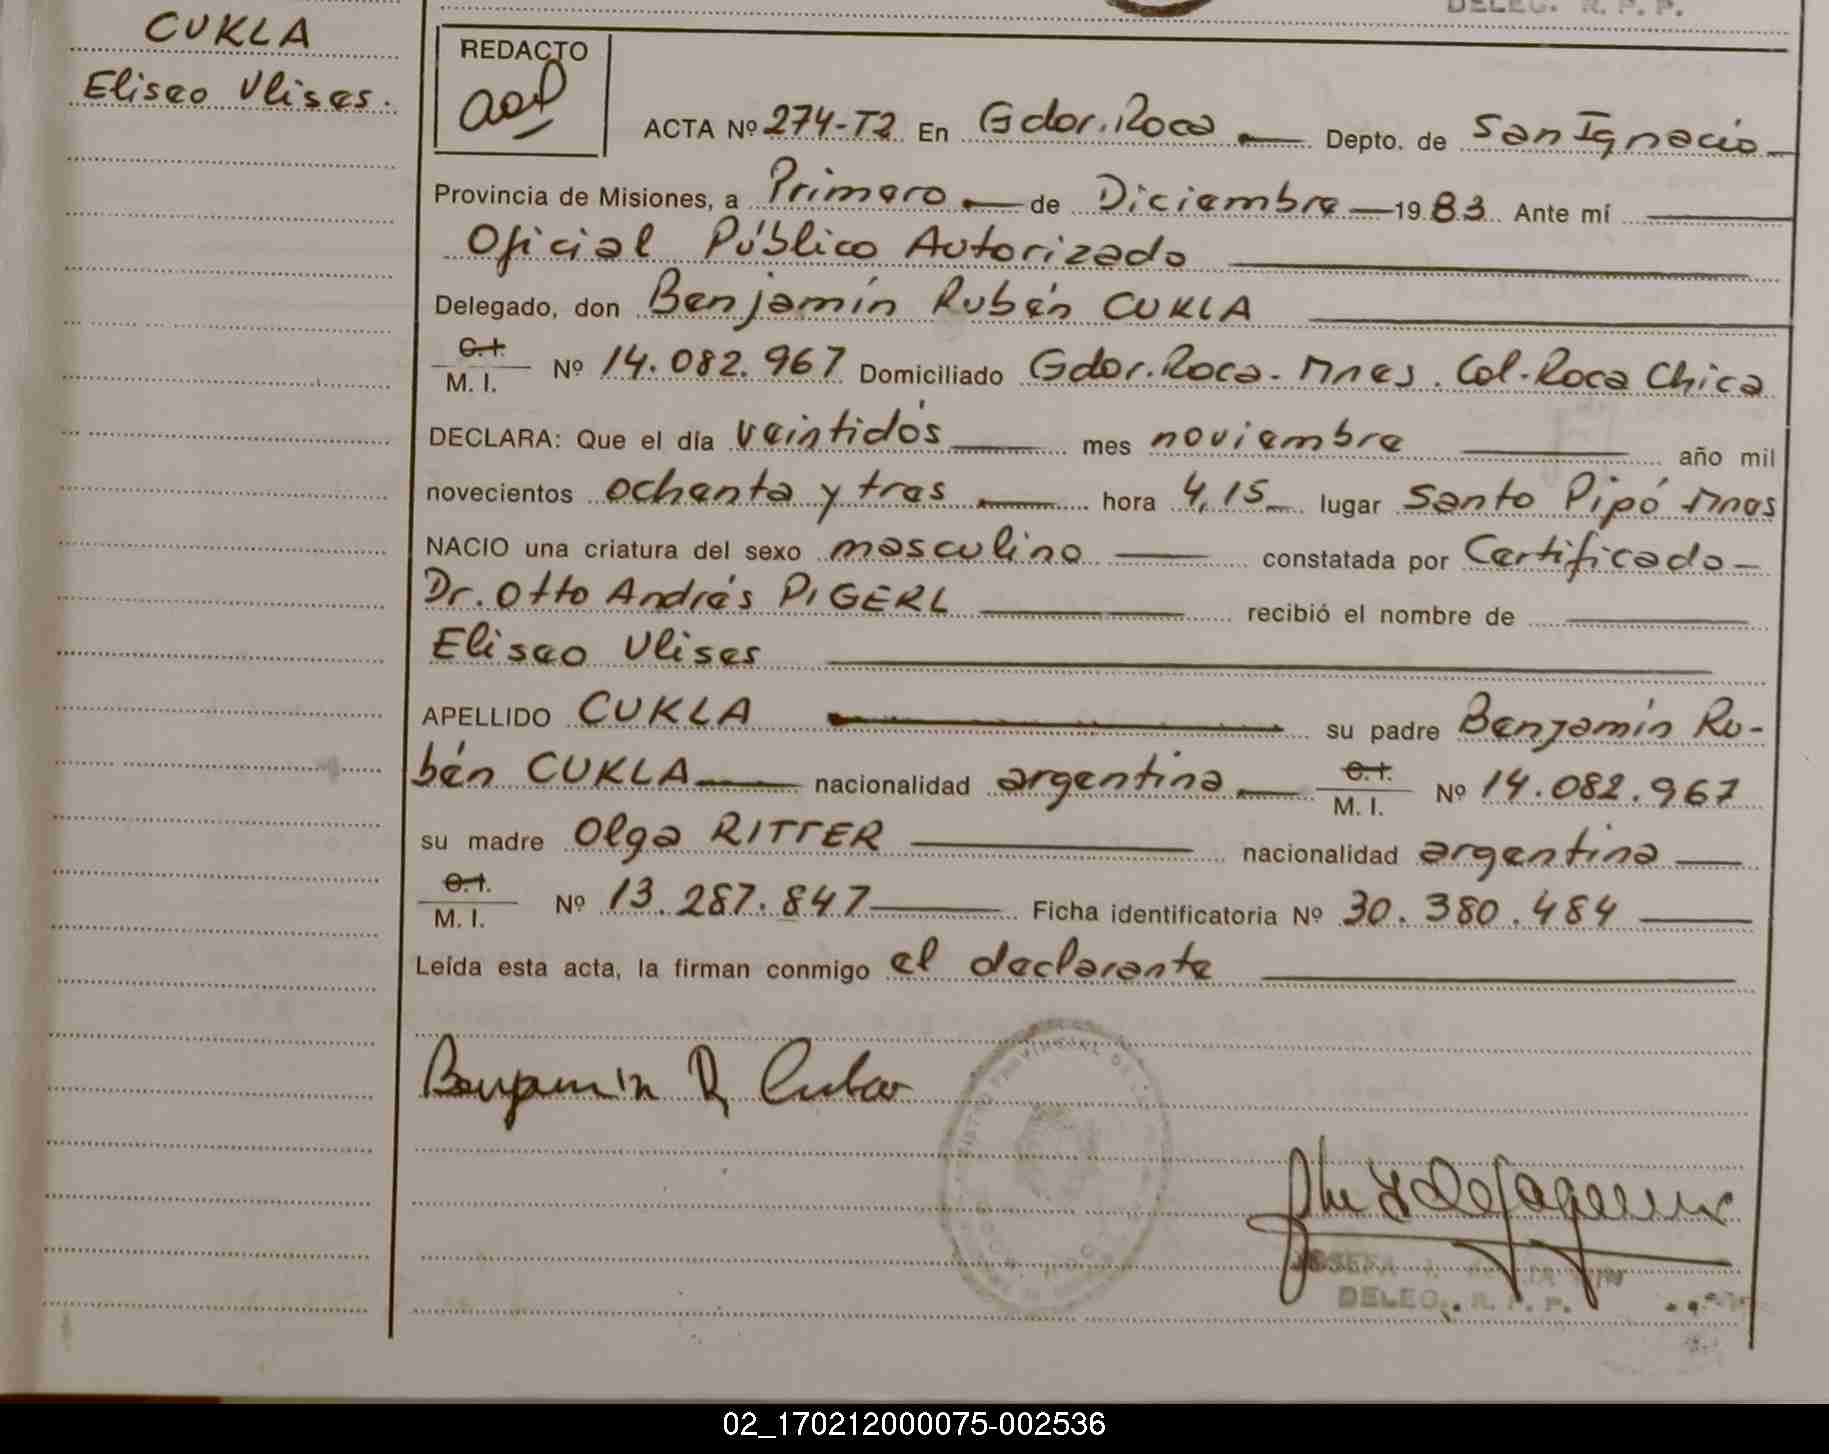 CUKLA
Eliseo Ulises.
DELEG. R. P. P.
REDACTO
ACTA Nº 274-T2 En Gdor. Roca Depto. de San Ignacio
Provincia de Misiones, a Primero de Diciembre 1983 Ante mí
Oficial Público Autorizado
Delegado, don Benjamín Rubén CUKLA
C.I.
M. I. Nº 14.082.967 Domiciliado Gdor. Roca. Mnes. Col. Roca Chica
DECLARA: Que el día veintidós mes noviembre año mil
novecientos ochenta y tres hora 4,15 lugar Santo Pipó Mnes
NACIO una criatura del sexo masculino constatada por Certificado
Dr. Otto Andrés PIGERL recibió el nombre de
Eliseo Ulises
APELLIDO CUKLA su padre Benjamín Ru-
bén CUKLA nacionalidad argentina C.I. M. I. Nº 14.082.967
su madre Olga RITTER nacionalidad argentina
C.I.
M. I. Nº 13.287.847 Ficha identificatoria Nº 30.380.484
Leída esta acta, la firman conmigo el declarante
Benjamin R Cukla
JOSEFA
DELEG. R. P. P.
02_170212000075-002536